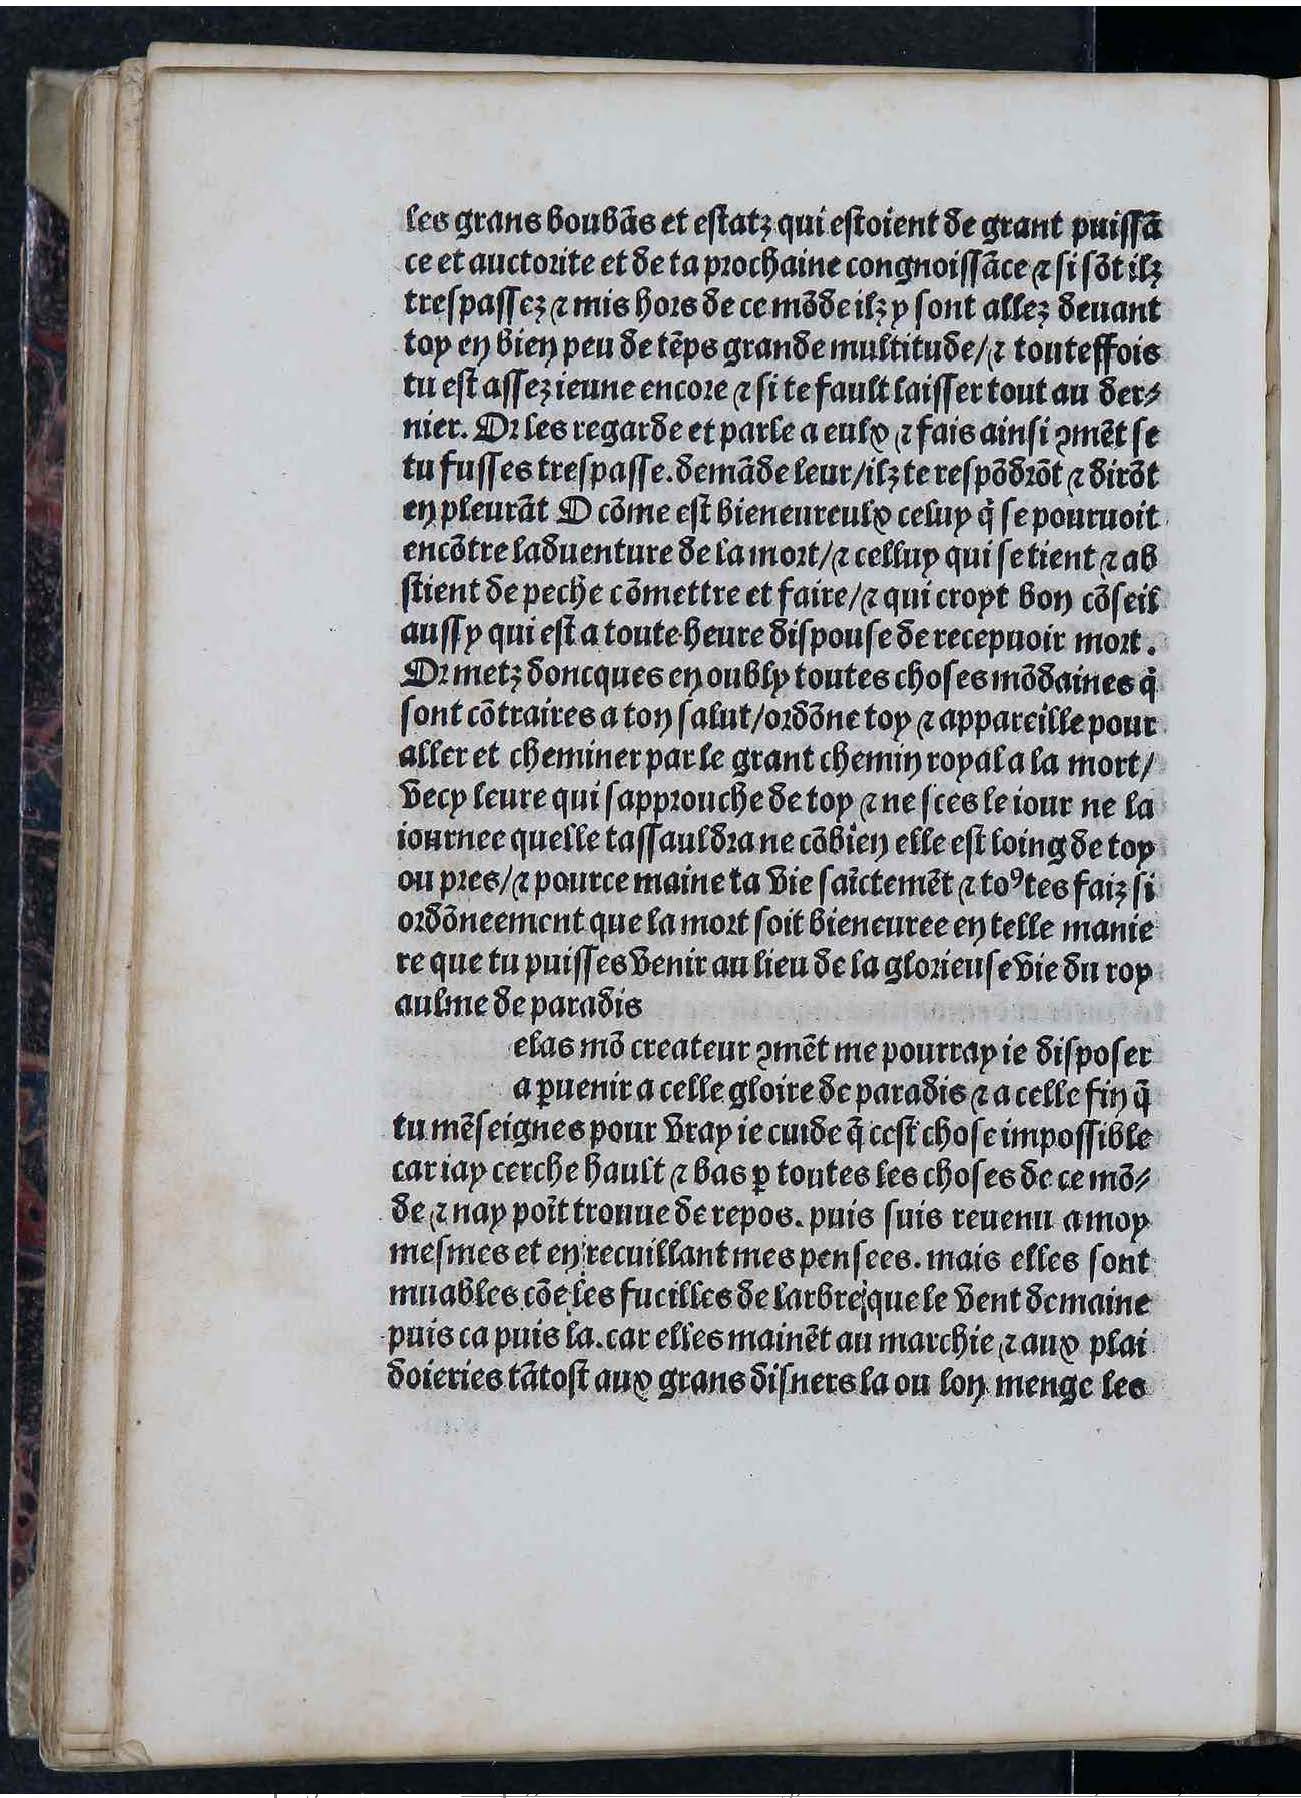 les grans boubãs et estatz qui estoient de grant puissã
ce et auctorite et de ta prochaine congnoissãce ⁊ si sõt ilz
trespassez ⁊ mis hors de ce mõde ilz y sont allez deuant
toy en bien peu de tẽps grande multitude/⁊ touteffois
tu est assez ieune encore ⁊ si te fault laisser tout au der⸗
nier. Or les regarde et parle a eulx ⁊ fais ainsi ꝯmẽt se
tu fusses trespasse. demãde leur/ilz te respõdrõt ⁊ dirõt
en pleurãt O cõme est bieneureulx celuy q̃ se pouruoit
encõtre laduenture de la mort/⁊ celluy qui se tient ⁊ ab
stient de peche cõmettre et faire/⁊ qui croyt bon cõseil
aussy qui est a toute heure dispouse de recepuoir mort.
Or metz doncques en oubly toutes choses mõdaines q̃
sont cõtraires a ton salut/ordõne toy ⁊ appareille pour
aller et cheminer par le grant chemin royal a la mort/
vecy leure qui sapprouche de toy ⁊ ne sces le iour ne la
iournee quelle tassauldra ne cõbien elle est loing de toy
ou pres/⁊ pource maine ta vie saĩctemẽt ⁊ toꝰtes faiz si
ordõneement que la mort soit bieneuree en telle manie
re que tu puisses venir au lieu de la glorieuse vie du roy
aulme de paradis
elas mõ createur ꝯmẽt me pourray ie disposer
a ꝑuenir a celle gloire de paradis ⁊ a celle fin q̃
tu mẽseignes pour vray ie cuide q̃ cest chose impossible
car iay cerche hault ⁊ bas ꝑ toutes les choses de ce mõ⸗
de ⁊ nay poĩt trouue de repos. puis suis reuenu a moy
mesmes et en recuillant mes pensees. mais elles sont
muables cõe les fueilles de larbre que le vent demaine
puis ca puis la. car elles mainẽt au marchie ⁊ aux plai
doieries tãtost aux grans disners la ou lon menge les